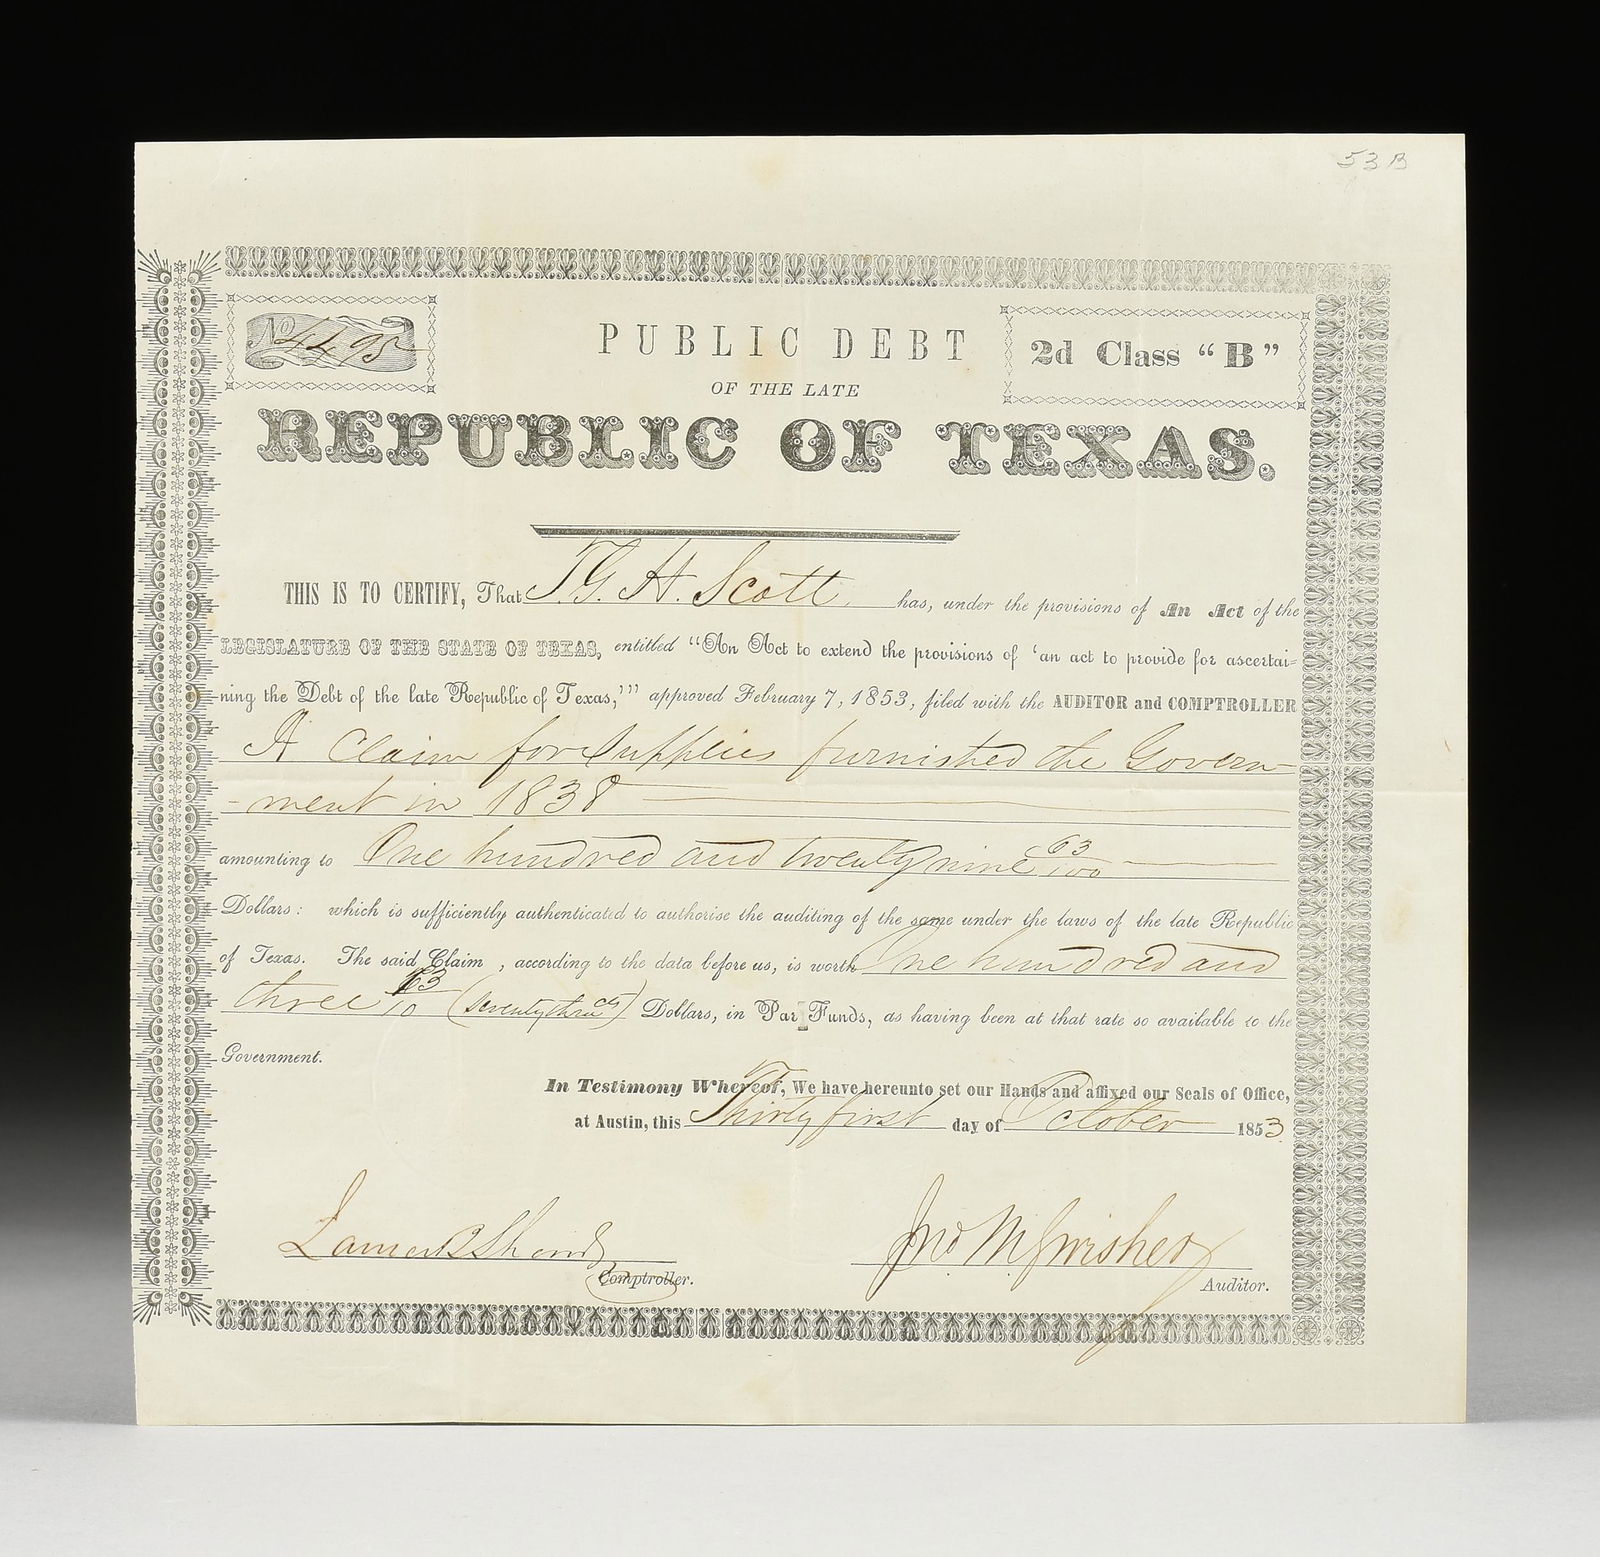 53 B
No 4495
PUBLIC DEBT
2d Class “B”
OF THE LATE
REPUBLIC OF TEXAS.
THIS IS TO CERTIFY, That T. G. H. Scott has, under the provisions of An Act of the
LEGISLATURE OF THE STATE OF TEXAS, entitled “An Act to extend the provisions of ‘an act to provide for ascertai-
ning the Debt of the late Republic of Texas,’” approved February 7, 1853, filed with the AUDITOR and COMPTROLLER
A Claim for Supplies furnished the Govern-
-ment in 1838
amounting to One hundred and twenty nine 63/100
Dollars: which is sufficiently authenticated to authorise the auditing of the same under the laws of the late Republic
of Texas. The said Claim, according to the data before us, is worth One hundred and
three (seventy three cts) Dollars, in Par Funds, as having been at that rate so available to the
Government.
In Testimony Whereof, We have hereunto set our Hands and affixed our Seals of Office,
at Austin, this Thirty first day of October 1853
James B Shaw
Comptroller.
Jno M Swisher
Auditor.